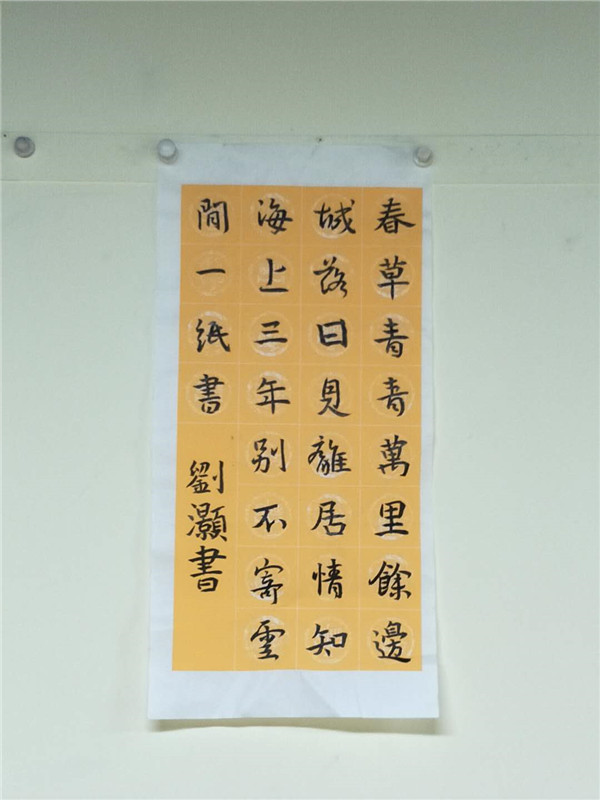 春草青青萬里餘邊
城落日見離居情知
海上三年別不寄雲
間一紙書
劉灝書